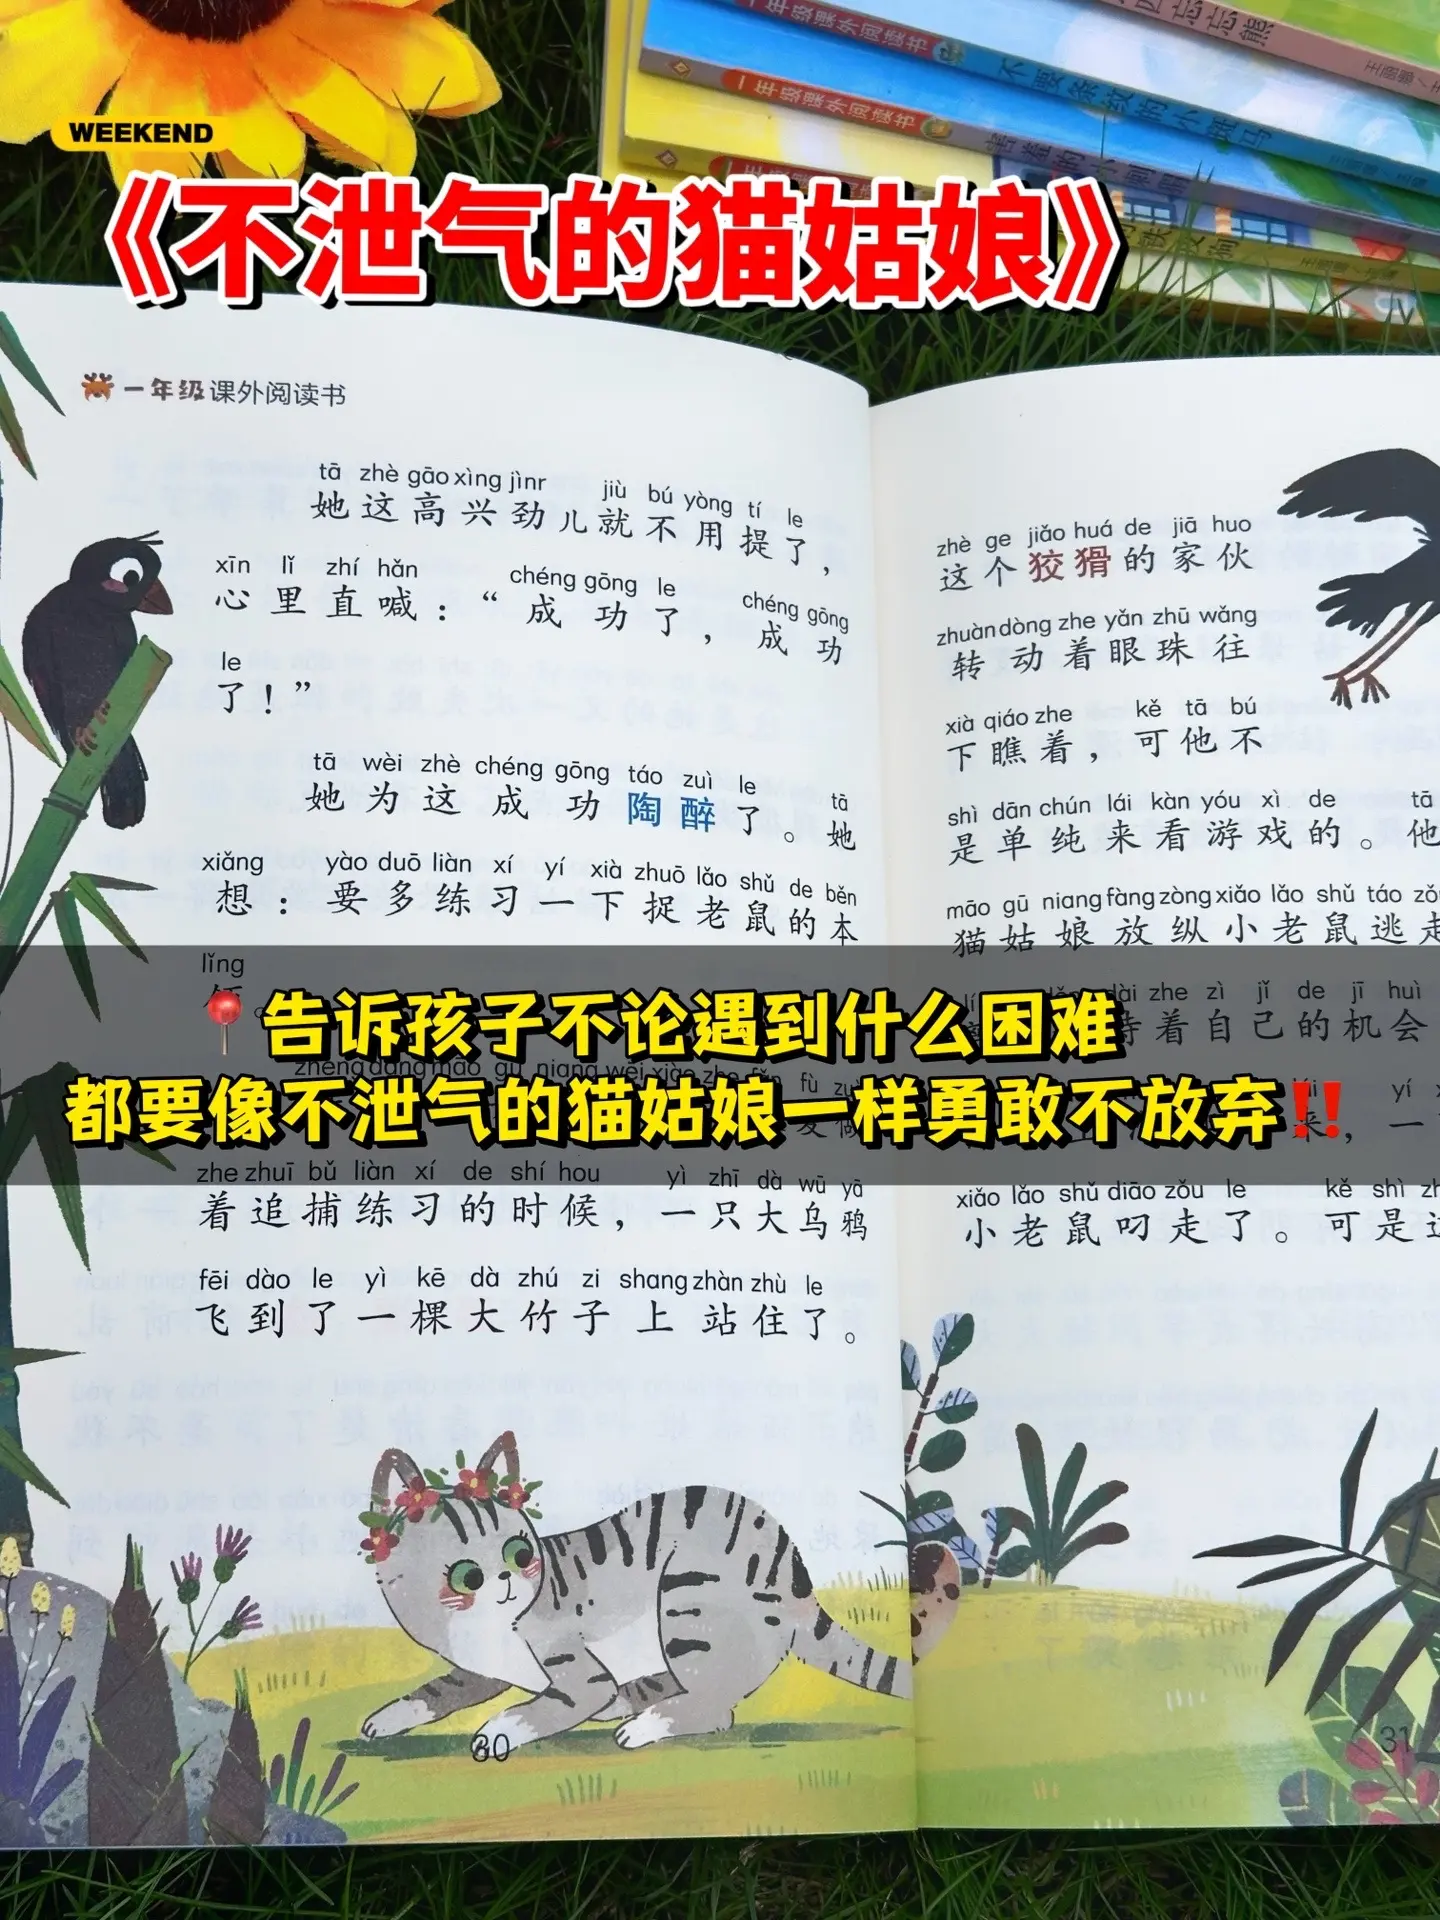 WEEKEND
一年级课外阅读书
一年级课外阅读书
《不泄气的猫姑娘》
一年级课外阅读书
tā zhè gāo xìng jìnr jiù bú yòng tí le
她这高兴劲儿就不用提了，
xīn lǐ zhí hǎn chéng gōng le chéng gōng
心里直喊：“成功了，成功
le
了！”
tā wèi zhè chéng gōng táo zuì le tā
她为这成功陶醉了。她
xiǎng yào duō liàn xí yí xià zhuō lǎo shǔ de běn
想：要多练习一下捉老鼠的本
lǐng
📍告诉孩子不论遇到什么困难
都要像不泄气的猫姑娘一样勇敢不放弃‼️
zhe zhuī bǔ liàn xí de shí hou yì zhī dà wū yā
着追捕练习的时候，一只大乌鸦
fēi dào le yì kē dà zhú zi shang zhàn zhù le
飞到了一棵大竹子上站住了。
30
zhè ge jiǎo huá de jiā huo
这个狡猾的家伙
zhuàn dòng zhe yǎn zhū wǎng
转动着眼珠往
xià qiáo zhe kě tā bú
下瞧着，可他不
shì dān chún lái kàn yóu xì de tā
是单纯来看游戏的。他
māo gū niang fàng zòng xiǎo lǎo shǔ táo
猫姑娘放纵小老鼠逃走
dài zhe zì jǐ de jī huì
待着自己的机会
yí
来，一
xiǎo lǎo shǔ diāo zǒu le kě shì
小老鼠叼走了。可是
31